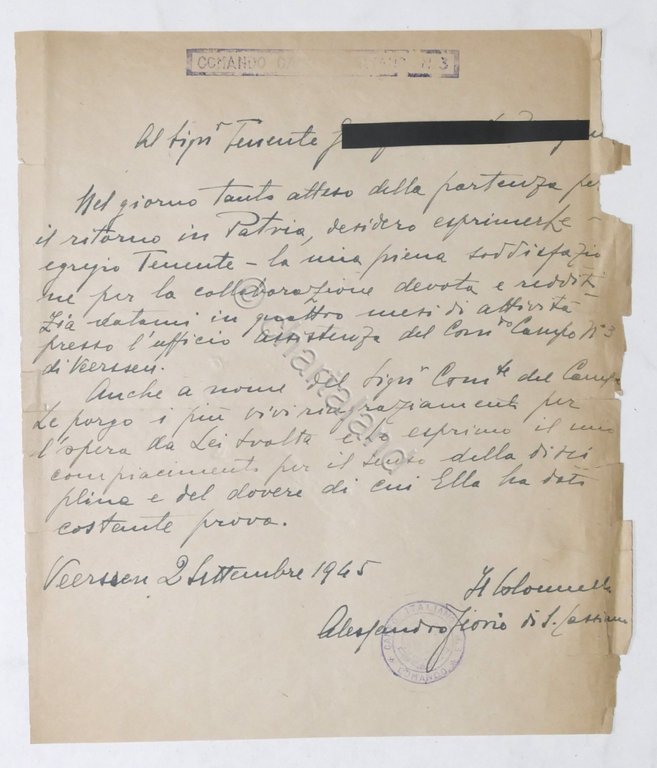 COMANDO CA ITALIANO N. 3
Al Sigʳ Tenente
Nel giorno tanto atteso della partenza per
il ritorno in Patria, desidero esprimerLe -
egregio Tenente - la mia piena soddisfazio
ne per la collaborazione devota e redditi
zia datami in quattro mesi di attività
presso l'ufficio assistenza del Comᵈᵒ Campo N° 3
di Veerssen.
Anche a nome del Sigʳ Comᵗᵉ del Campo
Le porgo i più vivi ringraziamenti per
l'opera da Lei svolta e Le esprimo il mio
compiacimento per il senso della disci
plina e del dovere di cui Ella ha dato
costante prova.
Veerssen 2 Settembre 1945
Il Colonnello
Alessandro Fiorio di S. Cassiano
ITALIANO
COMANDO
© chartaland